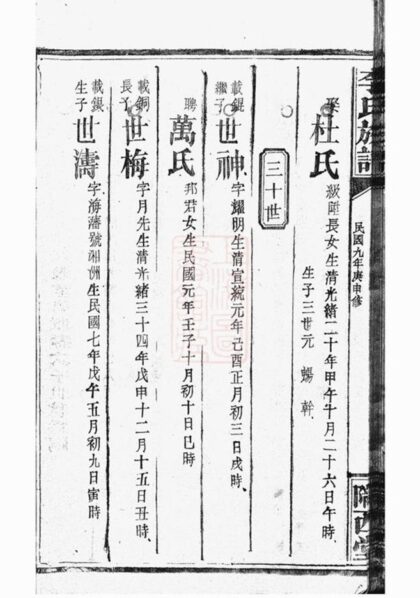 李氏族譜
民國九年庚申修
隴西堂
娶杜氏
級陞長女生清光緒二十年甲午午月二十六日午時
生子三世元 暢 幹
三十世
載錕繼子世神字耀明生清宣統元年己酉正月初三日戌時
聘萬氏邦君女生民國元年壬子十月初十日巳時
載銅長子世梅字月先生清光緒三十四年戊申十二月十五日丑時
載錕生子世濤字海藩號湘洲生民國七年戊午五月初九日寅時